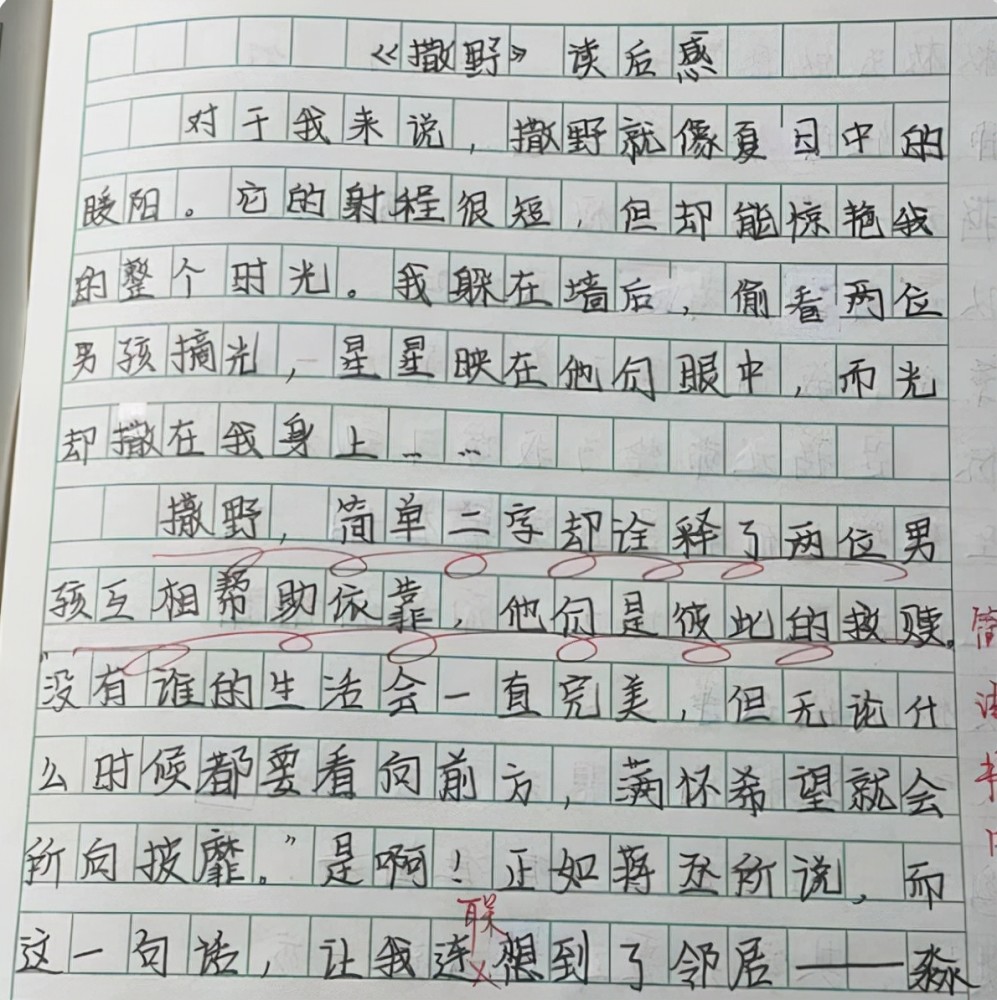 《撒野》读后感
对于我来说，撒野就像夏日中的
暖阳。它的射程很短，但却能惊艳我
的整个时光。我躲在墙后，偷看两位
男孩摘光，星星映在他们眼中，而光
却撒在我身上……
撒野，简单二字却诠释了两位男
孩互相帮助依靠，他们是彼此的救赎。
"没有谁的生活会一直完美，但无论什
么时候都要看向前方，满怀希望就会
所向披靡。"是啊！正如蒋丞所说，而
联
这一句话，让我连想到了邻居——淼